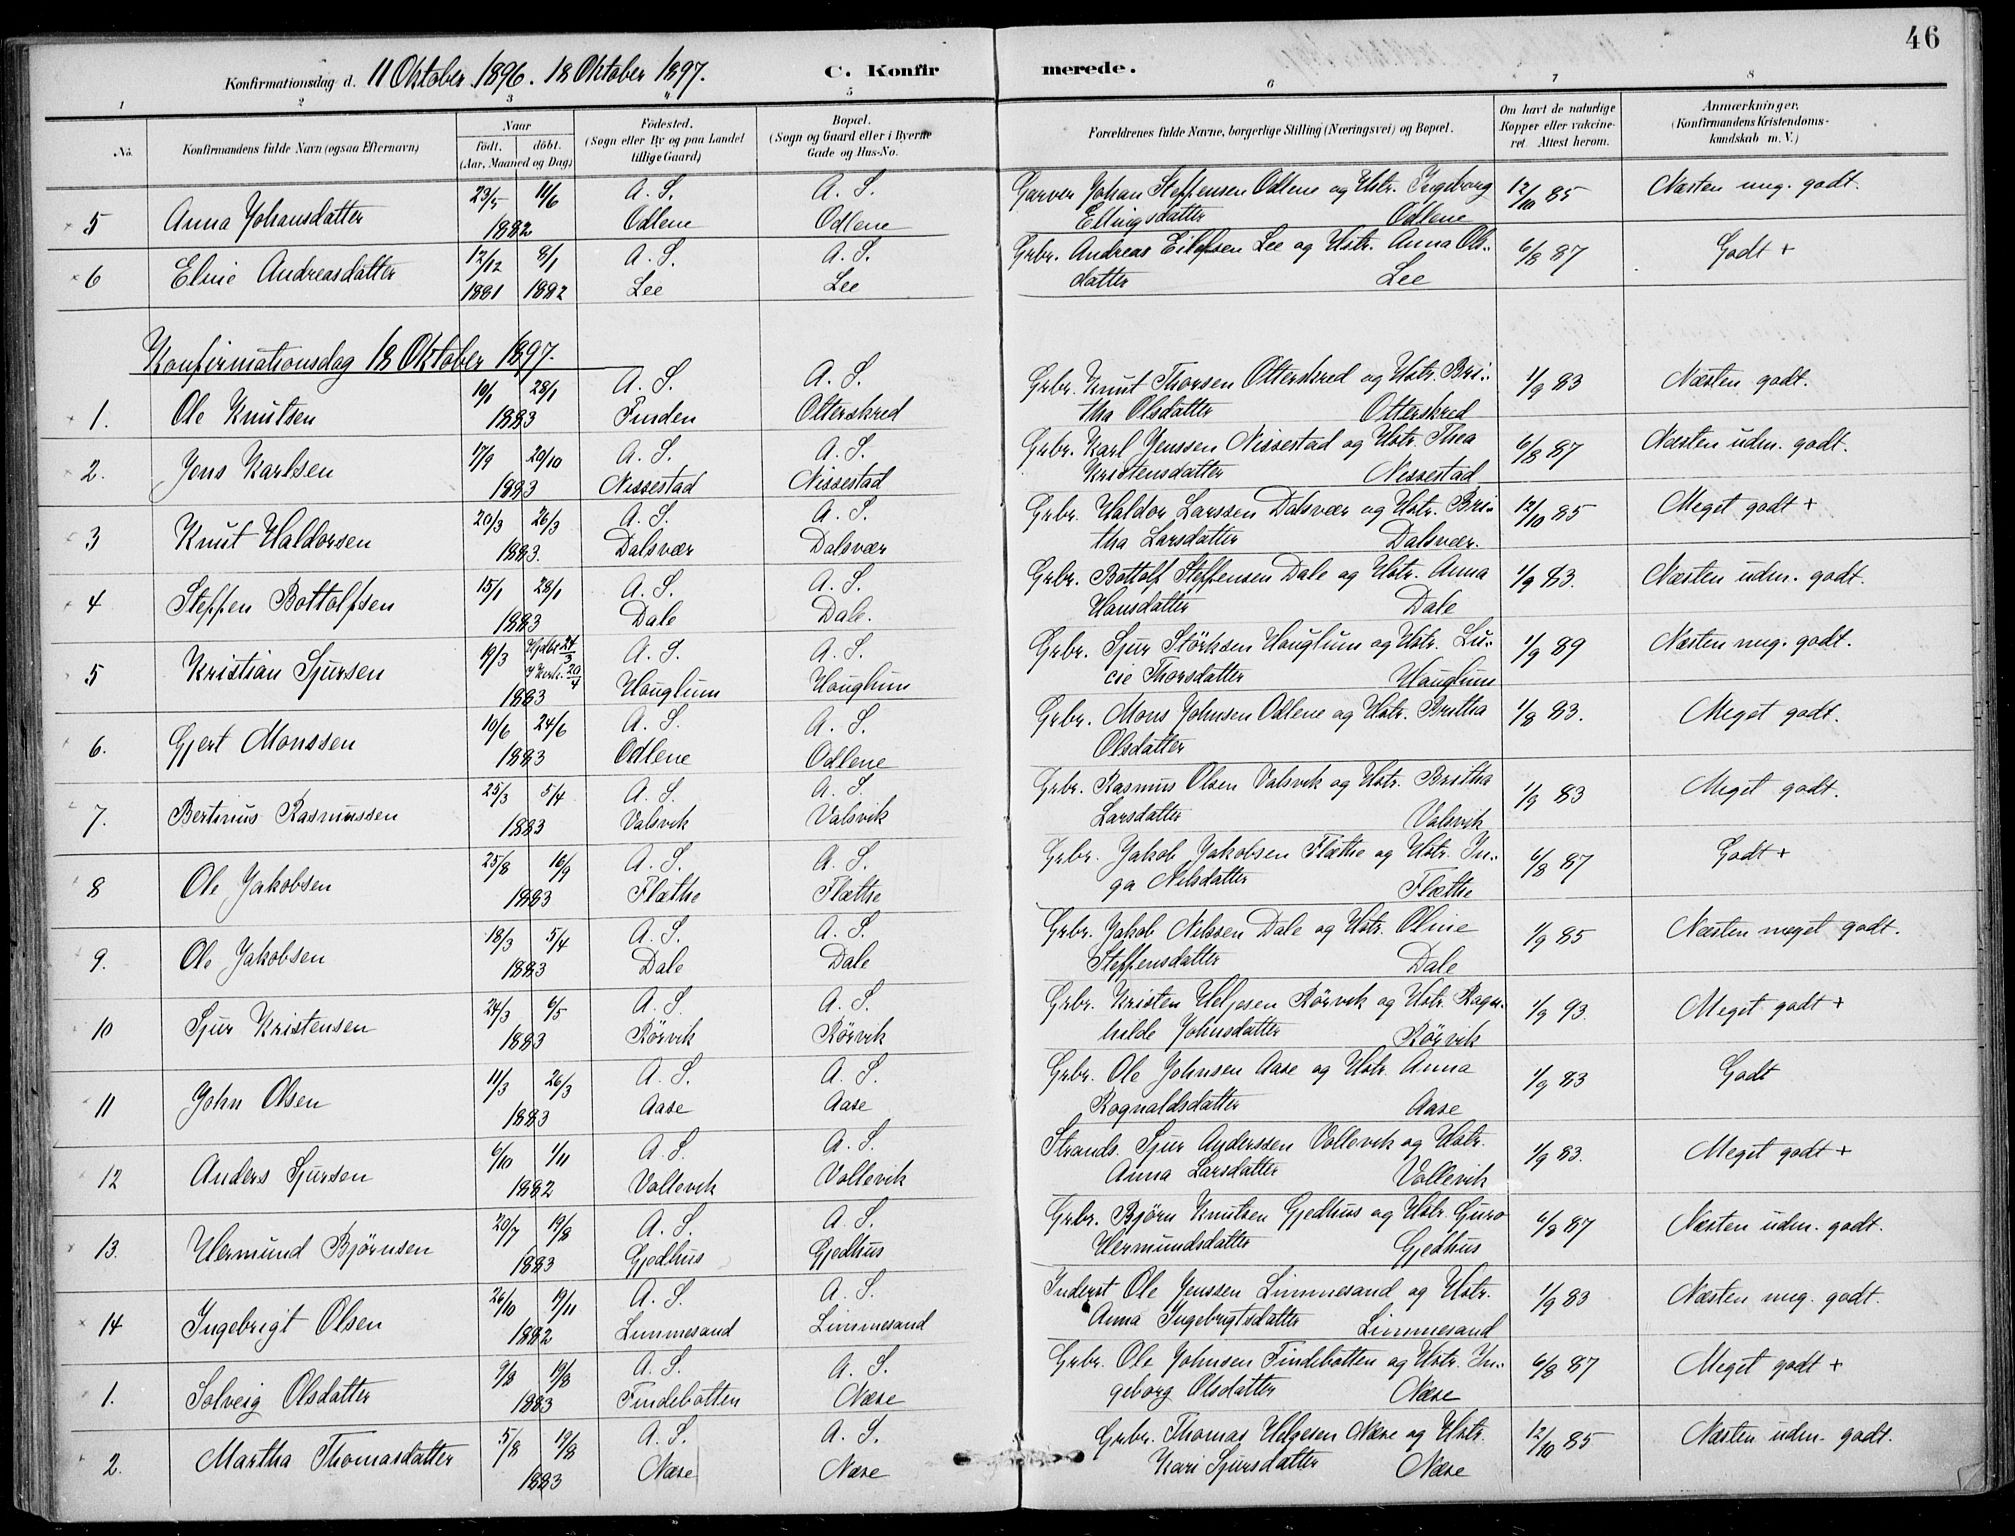 46
Konfirmationsdag d. 11 Oktober 1896. 18 Oktober 1897. C. Konfirmerede.
1 2 3 4 5 6 7 8
No. Konfirmandens fulde Navn (ogsaa Efternavn) Naar födt. döbt. (Aar, Maaned og Dag) Födested. (Sogn eller By og paa Landet tillige Gaard) Bopæl. (Sogn og Gaard eller i Byerne Gade og Hus-No. Forældrenes fulde Navne, borgerlige Stilling (Næringsvei) og Bopæl. Om havt de naturlige Kopper eller vakcineret. Attest herom. Anmærkninger. (Konfirmandens Kristendomskundskab m. V.)
5 Anna Johansdatter 23/5 11/6 1882 A. S. Odlene A. S. Odlene Garver Johan Steffensen Odlene og Hstr. Ingeborg Ellingsdatter Odlene 12/10 85 Næsten mg. godt.
6 Eline Andreasdatter 12/12 1881 8/1 1882 A. S. Lee A. S. Lee Grbr. Andreas Eilefsen Lee og Hstr. Anna Olsdatter Lee 6/8 87 Godt +
Konfirmationsdag 18 Oktober 1897.
1. Ole Knutsen 10/1 28/1 1883 A. S. Finden A. S. Otterskred Grbr. Knut Thorsen Otterskred og Hstr. Britha Olsdatter Otterskred 1/9 83 Næsten godt.
2. Jens Karlsen 17/9 20/10 1883 A. S. Nissestad A. S. Nissestad Grbr. Karl Jenssen Nissestad og Hstr. Thea Kristensdatter Nissestad 6/8 87 Næsten udm. godt.
3 Knut Haldorsen 20/3 26/3 1883. A. S. Dalsvær A. S. Dalsvær Grbr. Haldor Larssen Dalsvær og Hstr. Britha Larsdatter Dalsvær. 12/10 85 Meget godt +
4 Steffen Bottolfsen 15/1 28/1 1883 A. S. Dale A. S. Dale. Grbr. Bottolf Steffensen Dale og Hstr. Anna Hansdatter Dale 1/9 83. Næsten udm. godt.
5 Kristian Sjursen 19/3 Hjdbt 24/3 1883 A. S. Hauglum A. S. Hauglum Grbr. Sjur Störksen Hauglum og Hstr. Lucie Thorsdatter Hauglum 1/9 89 Næsten mg. godt.
6. Gjert Monssen 10/6 24/6 1883 A. S. Odlene A. S. Odlene Grbr. Mons Johnsen Odlene og Hstr. Britha Olsdatter 1/8 83. Meget godt.
7. Bertinus Rasmussen 25/3 5/4 1883 A. S. Valsvik A. S. Valsvik Grbr. Rasmus Olsen Valsvik og Hstr. Britha Larsdatter Valsvik 1/9 83 Meget godt.
8 Ole Jakobsen 25/8 16/9 1883 A. S. Flæthe A. S. Flæthe Grbr. Jakob Jakobsen Flæthe og Hstr. Inga Nilsdatter Flæthe 6/8 87 Godt +
9. Ole Jakobsen 18/3 5/4 1883 A. S. Dale A. S. Dale Grbr. Jakob Nilssen Dale og Hstr. Oline Steffensdatter Dale 1/9 85 Næsten meget godt.
10 Sjur Kristensen 24/3 6/5 1883 A. S. Rörvik A. S. Rörvik Grbr. Kristen Helgesen Rörvik og Hstr. Ragnhilde Johnsdatter Rörvik 1/9 93. Meget godt +
11 John Olsen 11/3 26/3 1883 A. S. Aase A. S. Aase Grbr. Ole Johnsen Aase og Hstr. Anna Rognaldsdatter Aase 1/9 83 Godt
12 Anders Sjursen 6/10 1/11 1882 A. S. Vollevik A. S. Vollevik Strands. Sjur Anderssen Vollevik og Hstr. Anna Larsdatter Vollevik 1/9 83. Meget godt +
13. Hermund Bjørnsen 20/7 19/8 1883 A. S. Gjedhus A. S. Gjedhus Grbr. Bjørn Knutsen Gjedhus og Hstr. Guro Hermundsdatter Gjedhus 6/8 87 Næsten udm. godt.
14 Ingebrigt Olsen 26/10 19/11 1882 A. S. Limmesand A. S. Limmesand Inderst Ole Jenssen Limmesand og Hstr. Anna Ingebrigtsdatter Limmesand 1/9 83 Næsten mg. godt.
1. Solveig Olsdatter 9/8 19/8 1883 A. S. Findebotten A. S. Næse Grbr. Ole Johnsen Findebotten og Hstr. Ingeborg Olsdatter Næse 6/8 87 Meget godt +
2. Martha Thomasdatter 5/8 19/8 1883 A. S. Næse A. S. Næse Grbr. Thomas Helgesen Næse og Hstr. Kari Sjursdatter Næse 12/10 85 Næsten udm. godt.